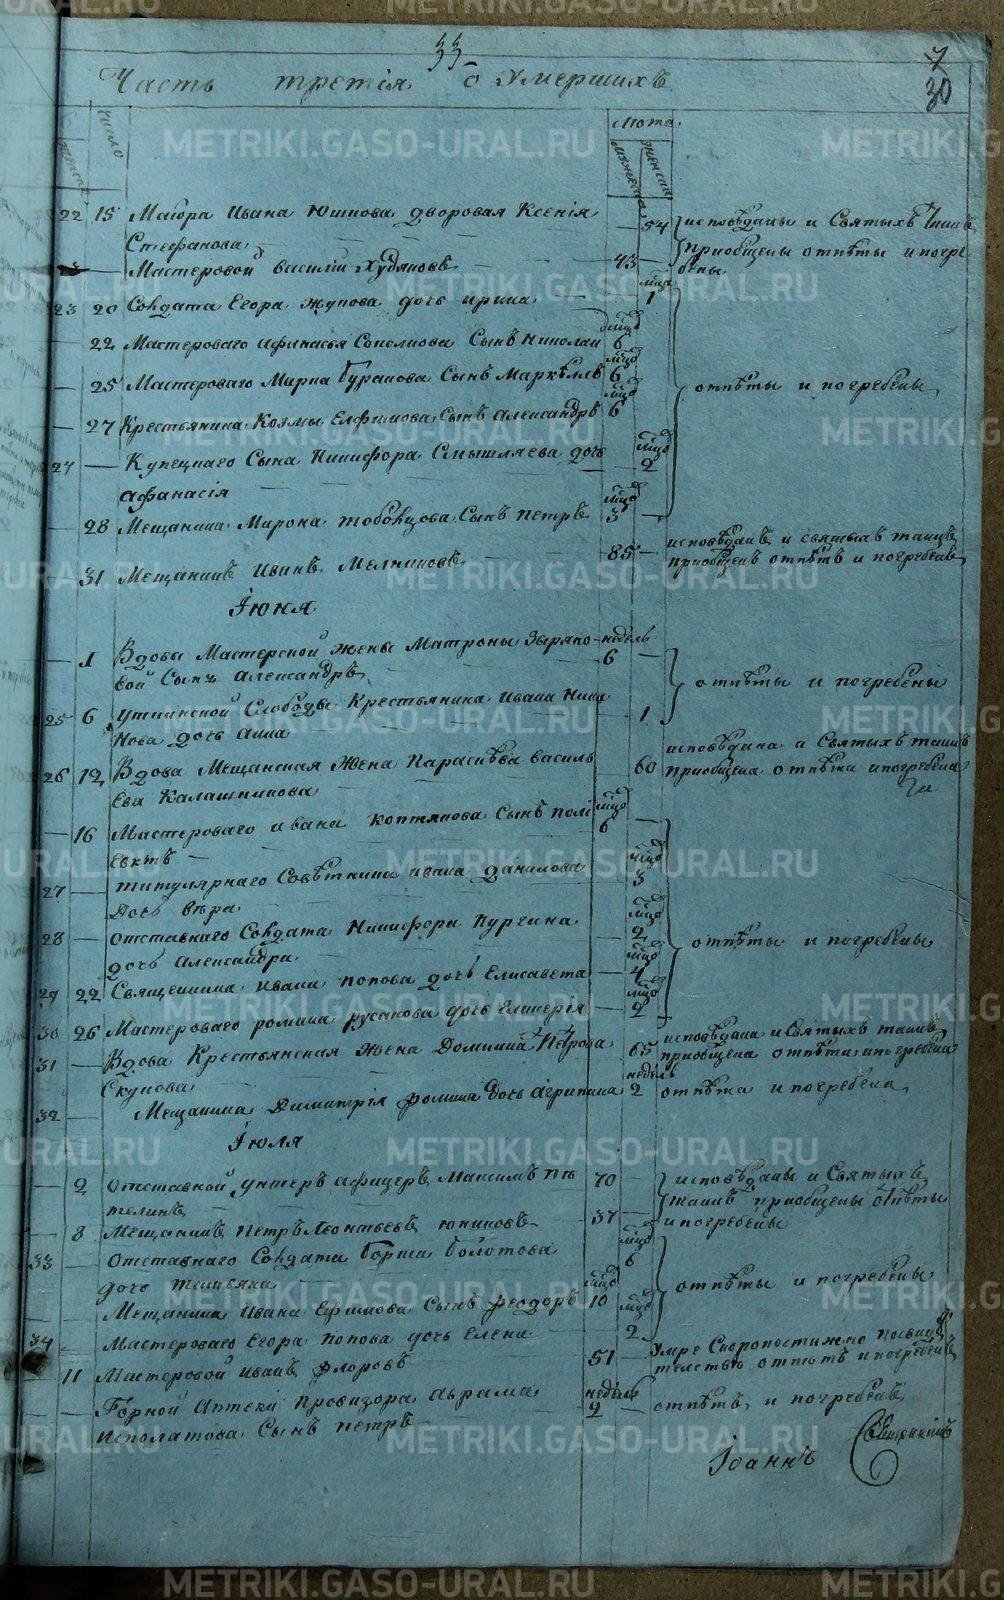 33
7
30
Часть третія о умершихъ
число
лета
мужеска
женска
22 15 Маіора Ивана Юшкова дворовая Ксенія — 54 исповѣданы и Святыхъ Таинъ
Стефанова
приобщены отпѣты и погре
Мастеровой василій Худяковъ 43 — бены
мцъ
23 20 Солдата Егора жукова дочь ирина — 1
мцъ
22 Мастероваго афанасья Соколкова Сынъ Николаи 6
мцъ
25 Мастероваго Марка Буракова Сынъ Маркѣлъ 6 отпѣты и погребены
мцъ
27 Крестьянина Козмы Елфимова Сынъ александръ 6
мцъ
27 — Купецкаго Сына Никифора Смышляева дочь — 2
афанасія
мцъ
28 Мещанина Мирона тобольцова Сынъ петръ 3 —
исповѣданъ и святыхъ таинъ
31 Мещанинъ Иванъ Мелниковъ 85 — приобщенъ отпѣтъ и погребенъ
Іюня
недель
— 1 Вдовы Мастерской жены Матроны Зыряно 6 —
вой Сынъ александръ отпѣты и погребены
25 6 уткинской Слободы Крестьянина Ивана Ники — 1
нова дочь анна
исповѣдана и Святыхъ таинъ
26 12 Вдова Мещанская жена Парасковва василь 60 приобщена отпѣта и погребена
ева Калашникова
мцъ
— 16 Мастероваго ивана коптякова Сынъ полі 6 —
евктъ
мцъ
27 — титулярнаго Совѣтника ивана данилова 3
Дочь вѣра
мцъ
28 — отставнаго Солдата Никифора Кургина 2 отпѣты и погребены
дочь александра
мцъ
29 22 Священника ивана попова дочь Елисавета — 4
мцъ
30 26 Мастероваго романа русакова дочь гликерія — 2
исповѣдана и Святыхъ таинъ
31 — Вдова Крестьянская жена Домника Петрова 65 приобщена отпѣта и погребена
Скукова
недель
32 Мещанина Димитрія фомина дочь агрипина 2 отпѣта и погребена
Іюля
— 2 отставной унтеръ афицеръ Максимъ пѣ 70 — исповѣданы и Святыхъ
телинъ таинъ приобщены отпѣты
— 8 Мещанинъ петръ леонтьевъ юниковъ 37 — и погребены
мцъ
33 — отставнаго Солдата Бориса Болотова 6
дочь татьяна отпѣты и погребены
мцъ
Мещанина ивана Ефимова Сынъ феодоръ 10
мцъ
34 — Мастероваго Егора попова дочь Елена 2
Умре Скоропостижно по свидѣ
11 Мастеровой иванъ флоровъ 51 — телству отпѣтъ и погребенъ
недель
Горной аптеки провизора аврама 2 — отпѣтъ и погребенъ
исполатова Сынъ петръ
Іоаннъ